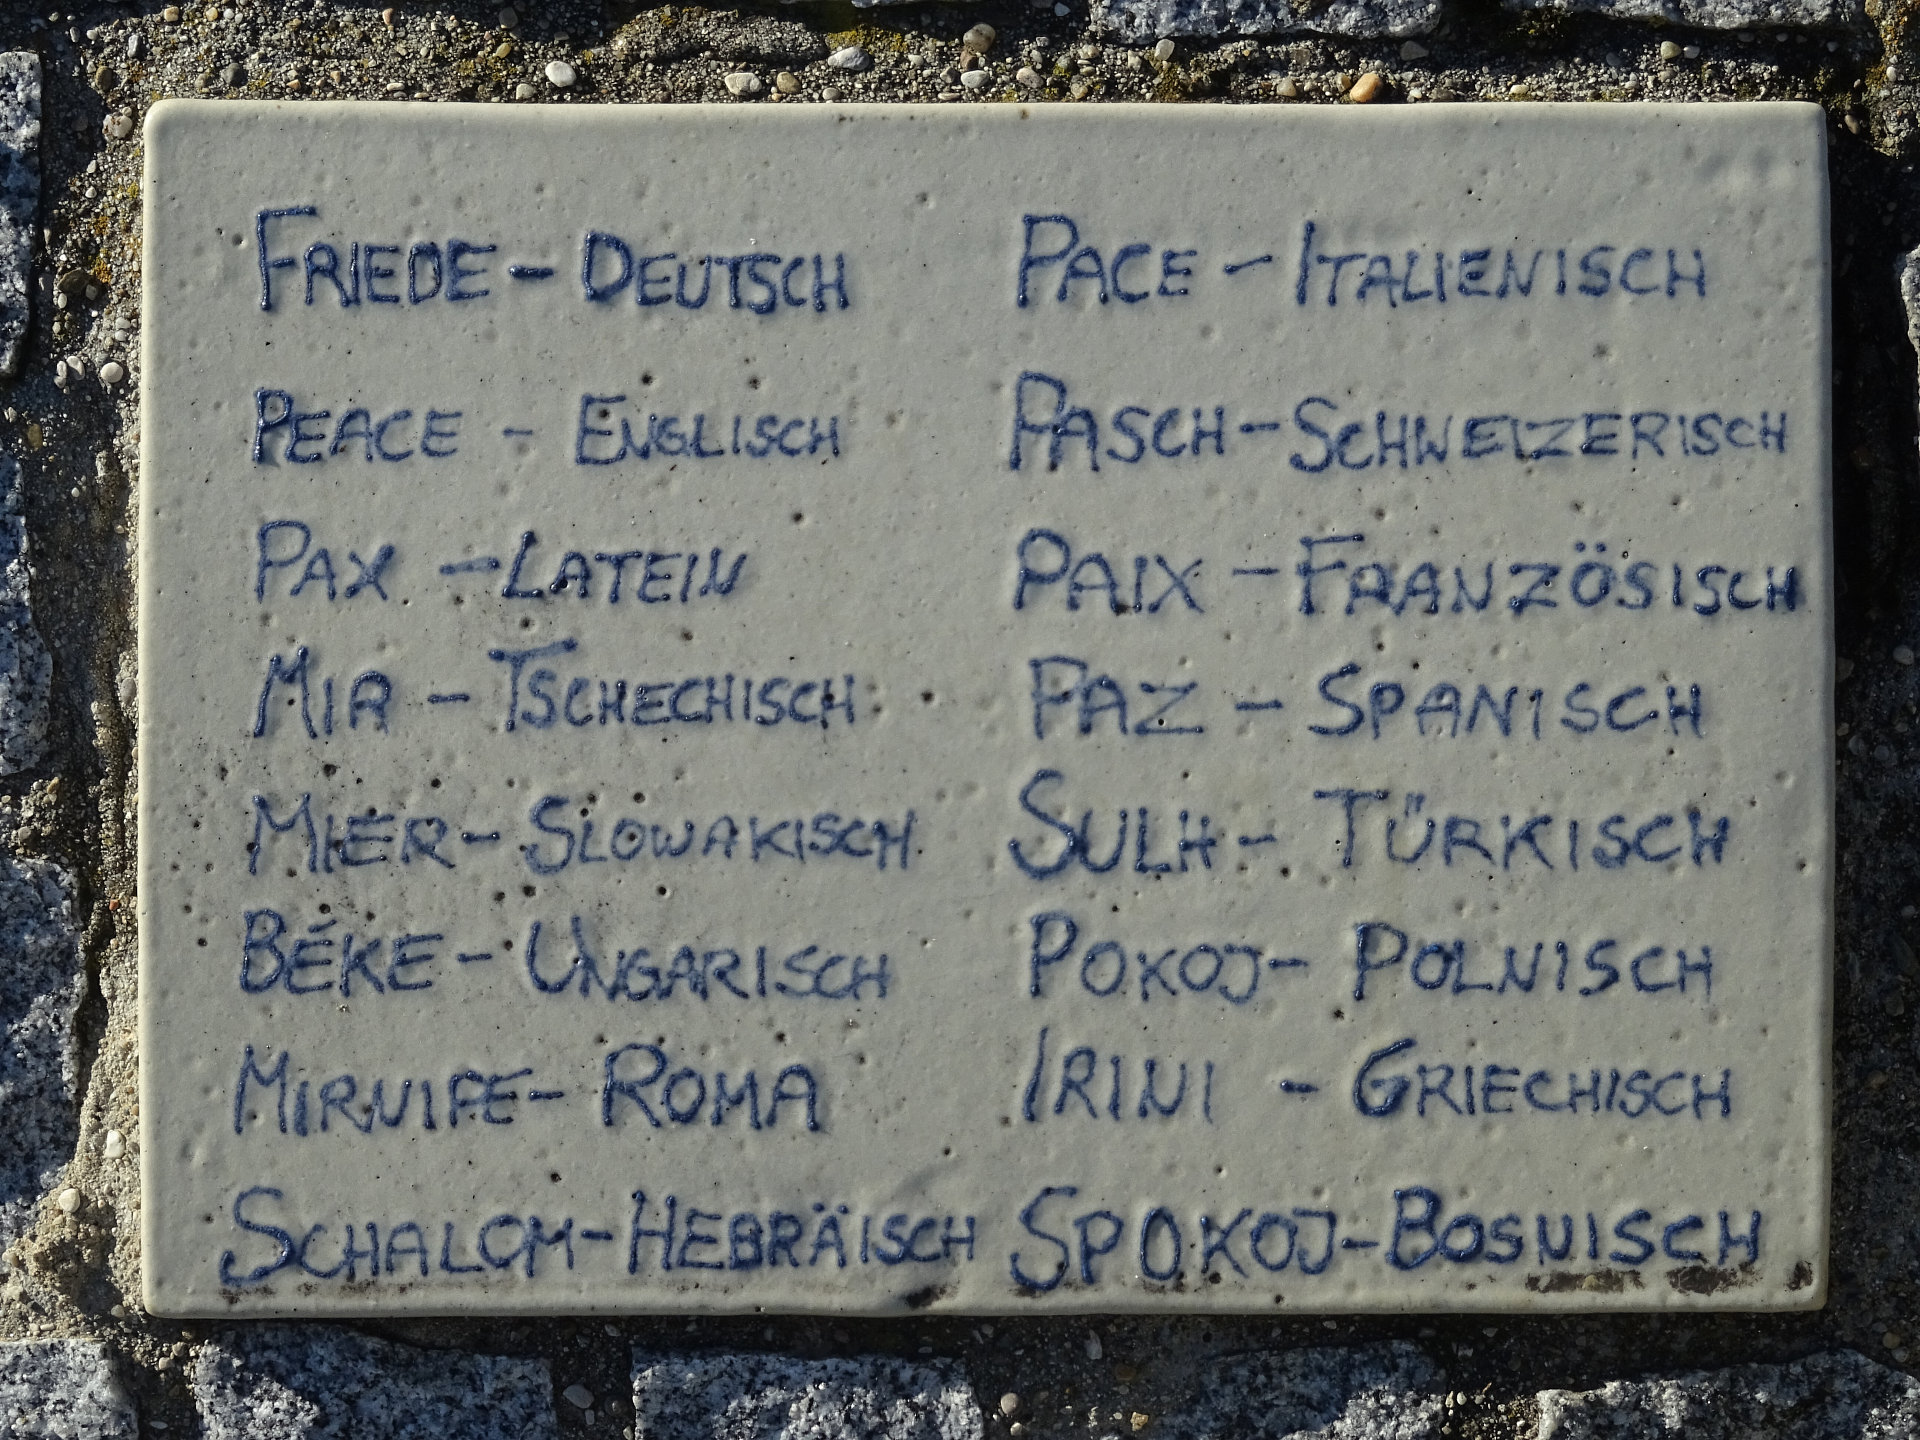 FRIEDE - DEUTSCH
PEACE - ENGLISCH
PAX - LATEIN
MIR - TSCHECHISCH
MIER - SLOWAKISCH
BÉKE - UNGARISCH
MIRNIPE - ROMA
SCHALOM - HEBRÄISCH
PACE - ITALIENISCH
PASCH - SCHWEIZERISCH
PAIX - FRANZÖSISCH
PAZ - SPANISCH
SULH - TÜRKISCH
POKOJ - POLNISCH
IRINI - GRIECHISCH
SPOKOJ - BOSNISCH